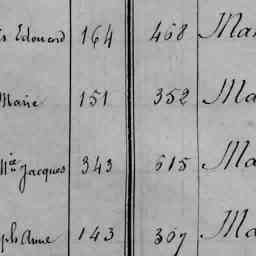 Edouard 164 468 Ma
Marie 151 352 Ma
Jacques 343 615 Ma
Anne 143 307 Ma